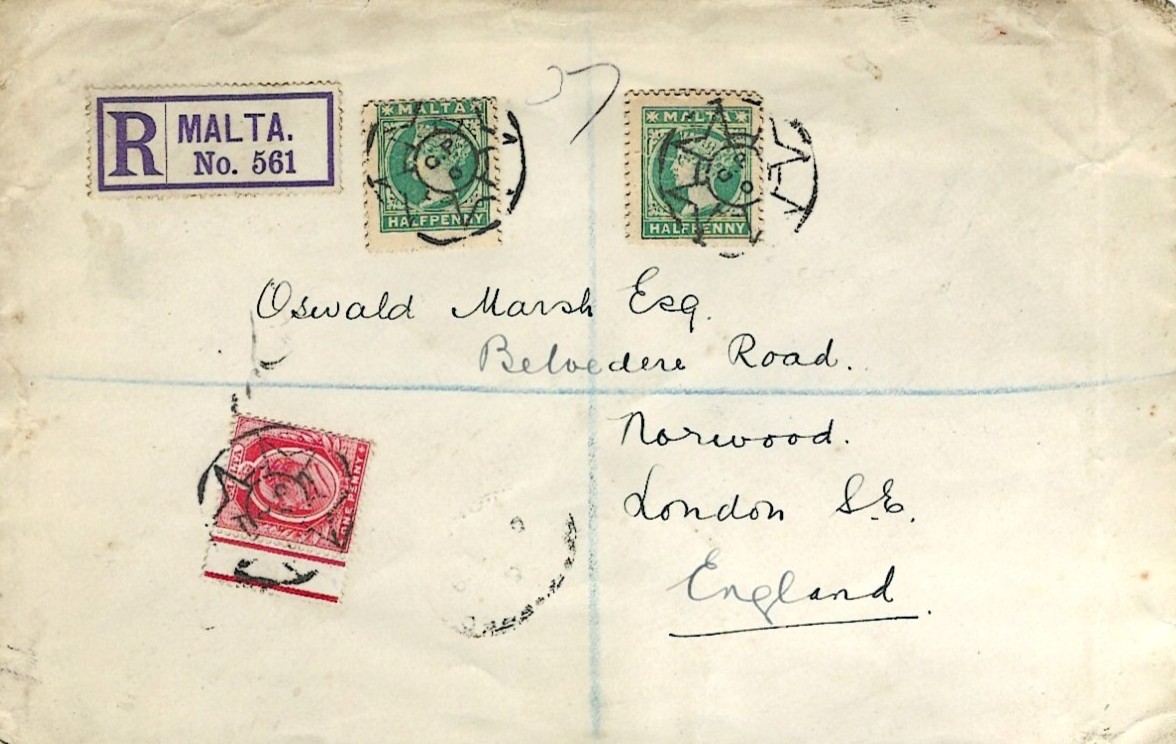 R MALTA.
No. 561
MALTA
HALFPENNY
MALTA
HALFPENNY
Oswald Marsh Esq.
Belvedere Road.
Norwood.
London S.E.
England
MALTA
ONE PENNY